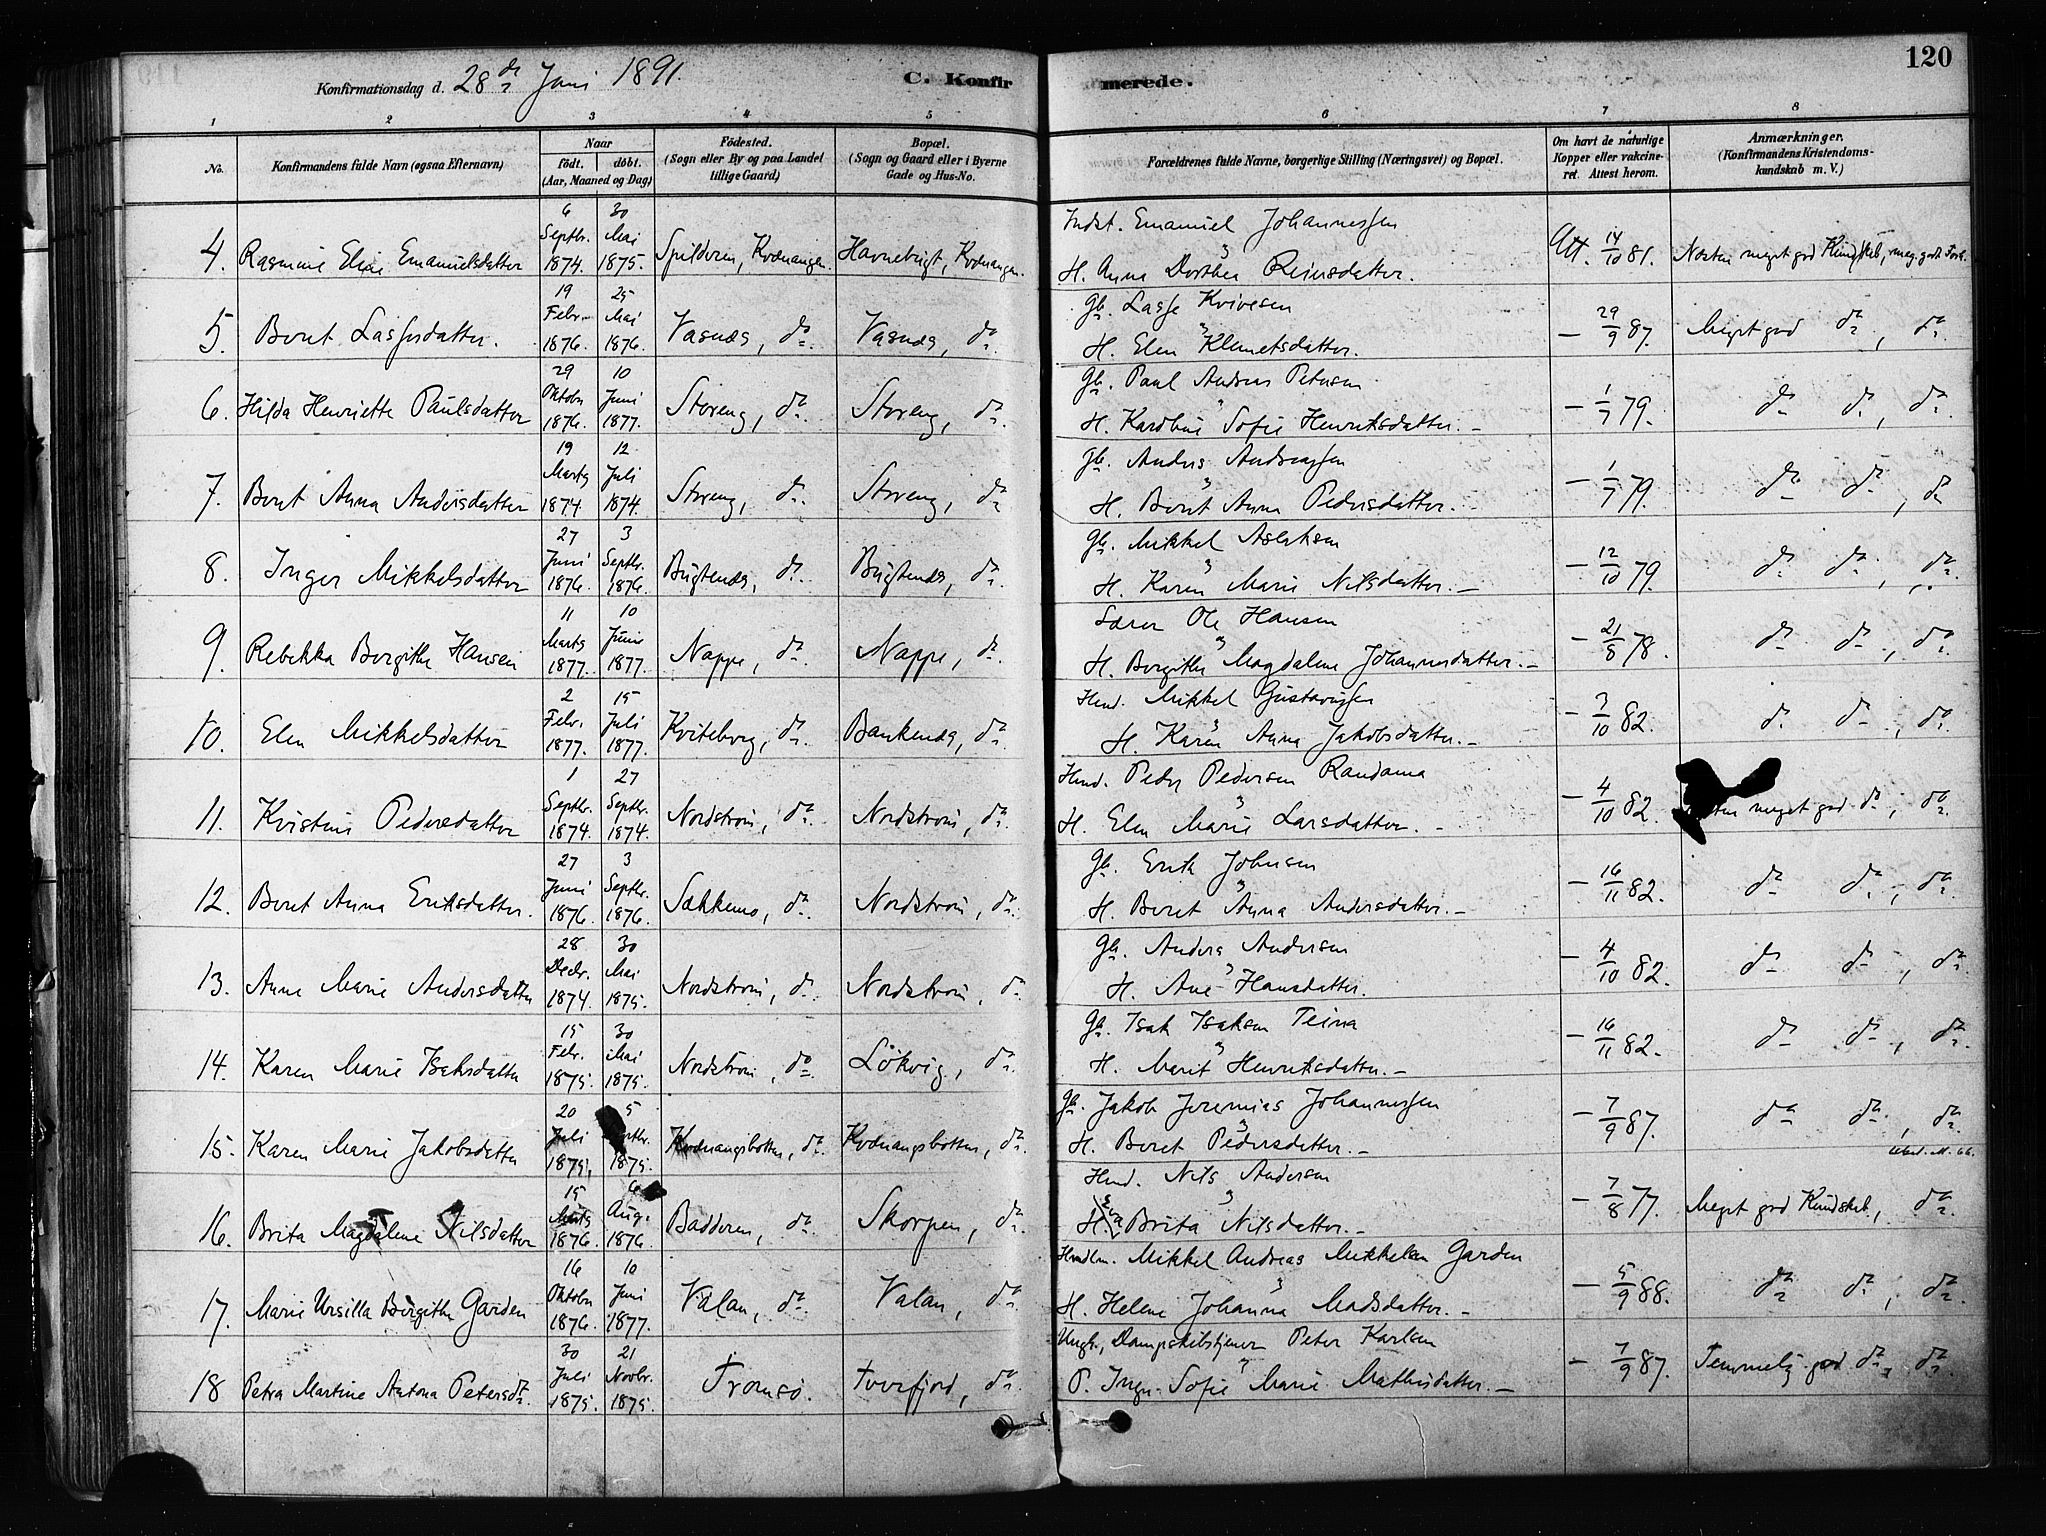 120
Konfirmationsdag d. 28de Juni 1891. C. Konfirmerede.
1 2 3 4 5 6 7 8
No. Konfirmandens fulde Navn (ogsaa Efternavn) Naar født. døbt. (Aar, Maaned og Dag) Födested. (Sogn eller By og paa Landet tillige Gaard) Bopæl. (Sogn og Gaard eller i Byerne Gade og Hus-No. Forældrenes fulde Navne, borgerlige Stilling (Næringsvei) og Bopæl. Om havt de naturlige Kopper eller vakcineret. Attest herom. Anmærkninger. (Konfirmandens Kristendomskundskab m. V.)
4. Rasmine Elise Emanuelsdatter 6 Septbr. 1874. 30 Mai 1875. Spilderen, Kvænangen. Havnebugt, Kvænangen. Indst. Emanuel Johannessen
H. Anna Dorthea Reinsdatter. Att. 14/10 81. Næsten meget god Kundskab, meg. godt Forh.
5. Beret Lassesdatter. 19 Febr. 1876. 25 Mai 1876. Vasnæs, do. Vasnæs, do. Gb. Lasse Kvivesen
H. Elen Klemetsdatter. — 29/9 87. Meget god do, do.
6. Hilda Henriette Paulsdatter 29 Oktobr 1876. 10 Juni 1877. Storeng, do. Storeng, do. Gb. Paul Andreas Petersen
H. Karoline Sofie Henriksdatter. — 1/7 79. do do, do.
7. Beret Anna Andersdatter 19 Marts 1874. 12 Juli 1874. Storeng, do. Storeng, do Gb. Anders Andreassen
H. Beret Anna Pedersdatter. — 1/7 79. do do, do
8. Inger Mikkelsdatter 27 Juni 1876. 3 Septbr. 1876. Bugtenæs, do. Bugtenæs, do. Gb. Mikkel Aslaksen
H. Karen Marie Nilsdatter. — 12/10 79. do do, do.
9. Rebekka Bergithe Hansen 11 Marts 1877. 10 Juni 1877. Nappe, do. Nappe, do. Lærer Ole Hansen
H. Bergithe Magdalene Johannesdatter. — 21/8 78. do do, do.
10. Elen Mikkelsdatter 2 Febr. 1877. 15 Juli 1877. Kviteberg, do. Bankenæs, do. Hmd. Mikkel Gustavsen
H. Karen Anna Jakobsdatter. — 3/10 82. do do, do.
11. Kristine Pedersdatter 1 Septbr. 1874. 27 Septbr. 1874. Nordstrøm, do. Nordstrøm, do. Hmd. Peder Pedersen Randama
H. Elen Marie Larsdatter. — 4/10 82. meget god do, do.
12. Beret Anna Eriksdatter. 27 Juni 1876. 3 Septbr. 1876. Sækkemo, do. Nordstrøm, do. Gb. Erik Johnsen
H. Beret Anna Andersdatter. — 16/11 82. do do, do.
13. Anne Marie Andersdatter 28 Decbr. 1874. 30 Mai 1875. Nordstrøm, do. Nordstrøm, do. Gb. Anders Andersen
H. Ane Hansdatter. — 4/10 82. do do, do.
14. Karen Marie Isaksdatter 15 Febr. 1875. 30 Mai 1875. Nordstrøm, do. Lökvig, do. Gb. Isak Isaksen Teina
H. Marit Henriksdatter. — 16/11 82. do do, do.
15. Karen Marie Jakobsdatter 20 Juli 1875. 5 Septbr. 1875. Kvænangsbotten, do. Kvænangsbotten, do. Gb. Jakob Jeremias Johannessen
H. Beret Pedersdatter. — 7/9 87. do do, do.
16. Brita Magdalene Nilsdatter 15 Marts 1876. 6 Aug. 1876. Badderen, do. Skorpen, do. Hmd. Nils Andersen
H. Eva Brita Nilsdatter. — 7/8 77. Meget god Kundskab, do.
17. Marie Ursilla Bergithe Garden 16 Oktobr 1876. 10 Juni 1877. Valan, do. Valan, do. Hmdlm. Mikkel Andreas Mikkelsen Garden
H. Helene Johanna Madsdatter. — 5/9 88. do do, do.
18 Petra Martine Antona Petersdr. 30 Juli 1875. 21 Novbr. 1875. Tromsø. Tverfjord, do. Ungk., Dampskibstjener Peter Karlsen
P. Inger Sofie Marie Mathisdatter. — 7/9 87. Temmelig god do, do.